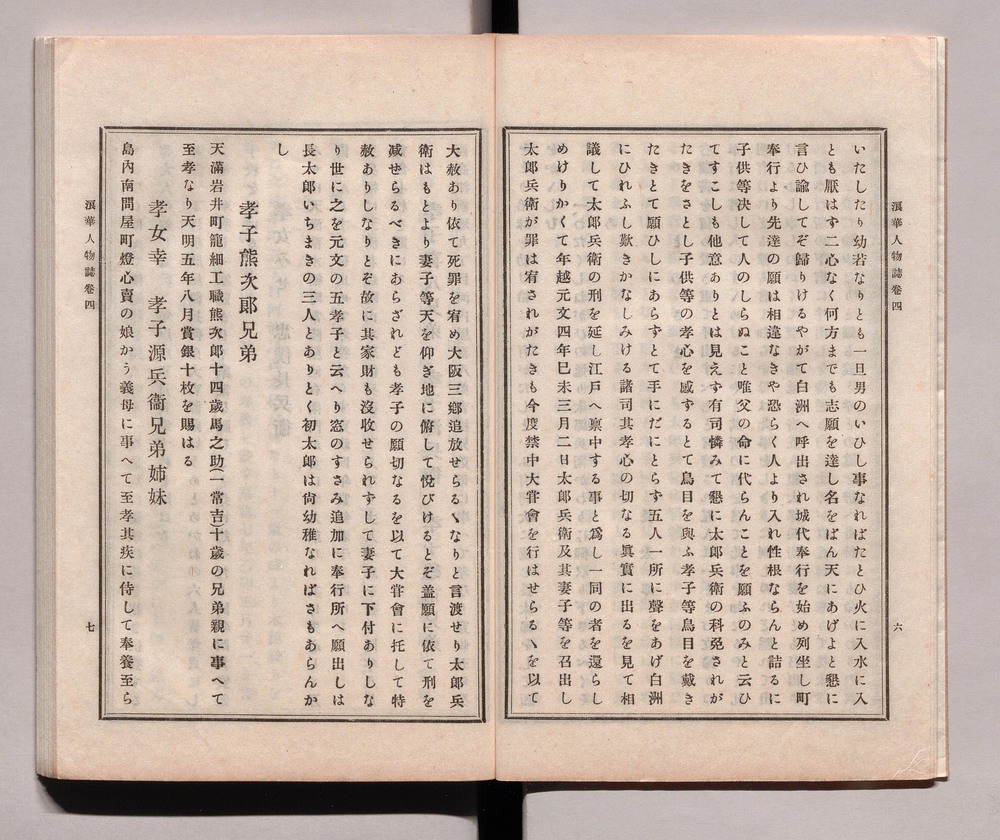 浪華人物誌卷四
六
いたしたり幼若なりとも一旦男のいひし事なればたとひ火に入水に入
とも厭はす二心なく何方までも志願を達し名をばん天にあげよと懇に
言ひ諭してぞ歸りけるやがて白洲へ呼出され城代奉行を始め列坐し町
奉行より先達の願は相違なきや恐らく人より入れ性根ならんと詰るに
子供等決して人のしらぬこと唯父の命に代らんことを願ふのみと云ひ
てすこしも他意ありとは見えす有司憐みて懇に太郎兵衛の科免されが
たきをさとし子供等の孝心を感ずるとて鳥目を與ふ孝子等鳥目を戴き
たきとて願ひしにあらすとて手にだにとらす五人一所に聲をあげ白洲
にひれふし歎きかなしみける諸司其孝心の切なる眞實に出るを見て相
議して太郎兵衛の刑を延し江戸へ禀中する事と爲し一同の者を還らし
めけりかくて年越元文四年巳未三月二日太郎兵衛及其妻子等を召出し
太郎兵衛が罪は宥されがたきも今度禁中大甞會を行はせらるゝを以て
大赦あり依て死罪を宥め大阪三鄕追放せらるゝなりと言渡せり太郎兵
衛はもとより妻子等天を仰ぎ地に俯して悅びけるとぞ盖願に依て刑を
减せらるべきにあらざれども孝子の願切なるを以て大甞會に托して特
赦ありしなりとぞ故に其家財も沒收せられずして妻子に下付ありしな
り世に之を元文の五孝子と云へり窓のすさみ追加に奉行所へ願出しは
長太郎いちまきの三人とありとく初太郎は尙幼稚なればさもあらんか
し
孝子熊次郎兄弟
天滿岩井町籠細工職熊次郎十四歲馬之助(一常吉)十歲の兄弟親に事へて
至孝なり天明五年八月賞銀十枚を賜はる
孝女幸　孝子源兵衞兄弟姉妹
島內南問屋町燈心賣の娘かう義母に事へて至孝其疾に侍して奉養至ら
浪華人物誌卷四
七